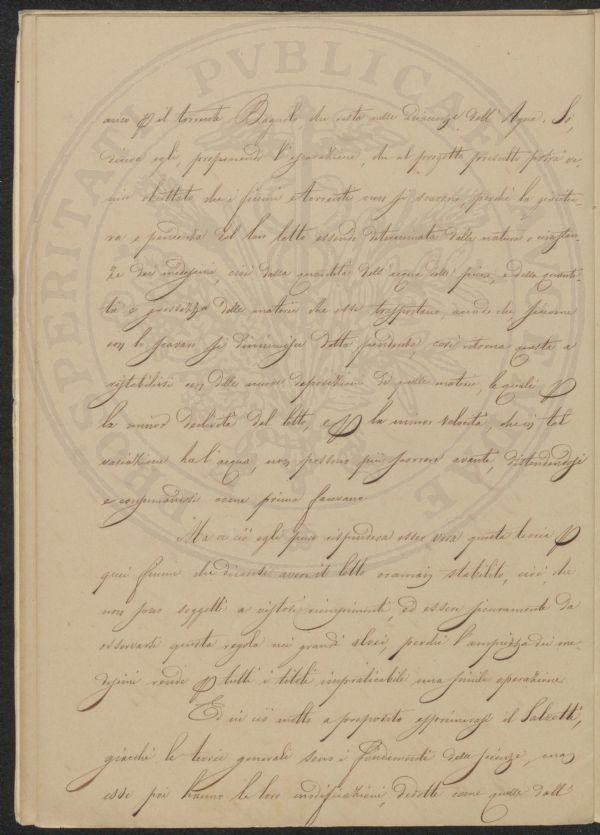 PROSPERITATI PVBLICAE
arico p il torrente Bagnolo, che resta nelle vicinanze dell' Agna. Si,
diceva egli, proponendo l'escavazione, che al progetto presente potrà ve-
nir obiettato che i fiumi e torrenti non si scavano, perchè la positu-
ra e pendenza del loro letto essendo determinata dalla natura e circostan-
ze dei medesimi, cioè dalla quantità dell' acqua delle piene, e dalla quanti-
tà e grossezza delle materie che esse trasportano, accade che siccome
con lo scavare si diminuisce detta pendenza, così ritorna questa a
ristabilirsi con delle nuove deposizioni di quelle materie, le quali p
la minor declività del letto, e p la minor velocità, che in tal
variazione ha l'acqua, non possono più scorrere avanti, distendendosi
e consumandosi come prima facevano
Ma a ciò egli pure rispondeva esser vera questa teoria p
quei fiumi che diconsi avere il letto oramai stabilito, cioè che
non sono soggetti a vistosi riempimenti, ed essere sicuramente da
osservarsi questa regola nei grandi alvei, perchè l'ampiezza dei me-
desimi rende p tutti i titoli impraticabile una simile operazione
Ed in ciò molto a proposito esprimevasi il Salvetti,
giacchè le teorie generali sono i fondamenti delle scienze, ma
esse poi hanno le loro modificazioni, dedotte come quelle dall'